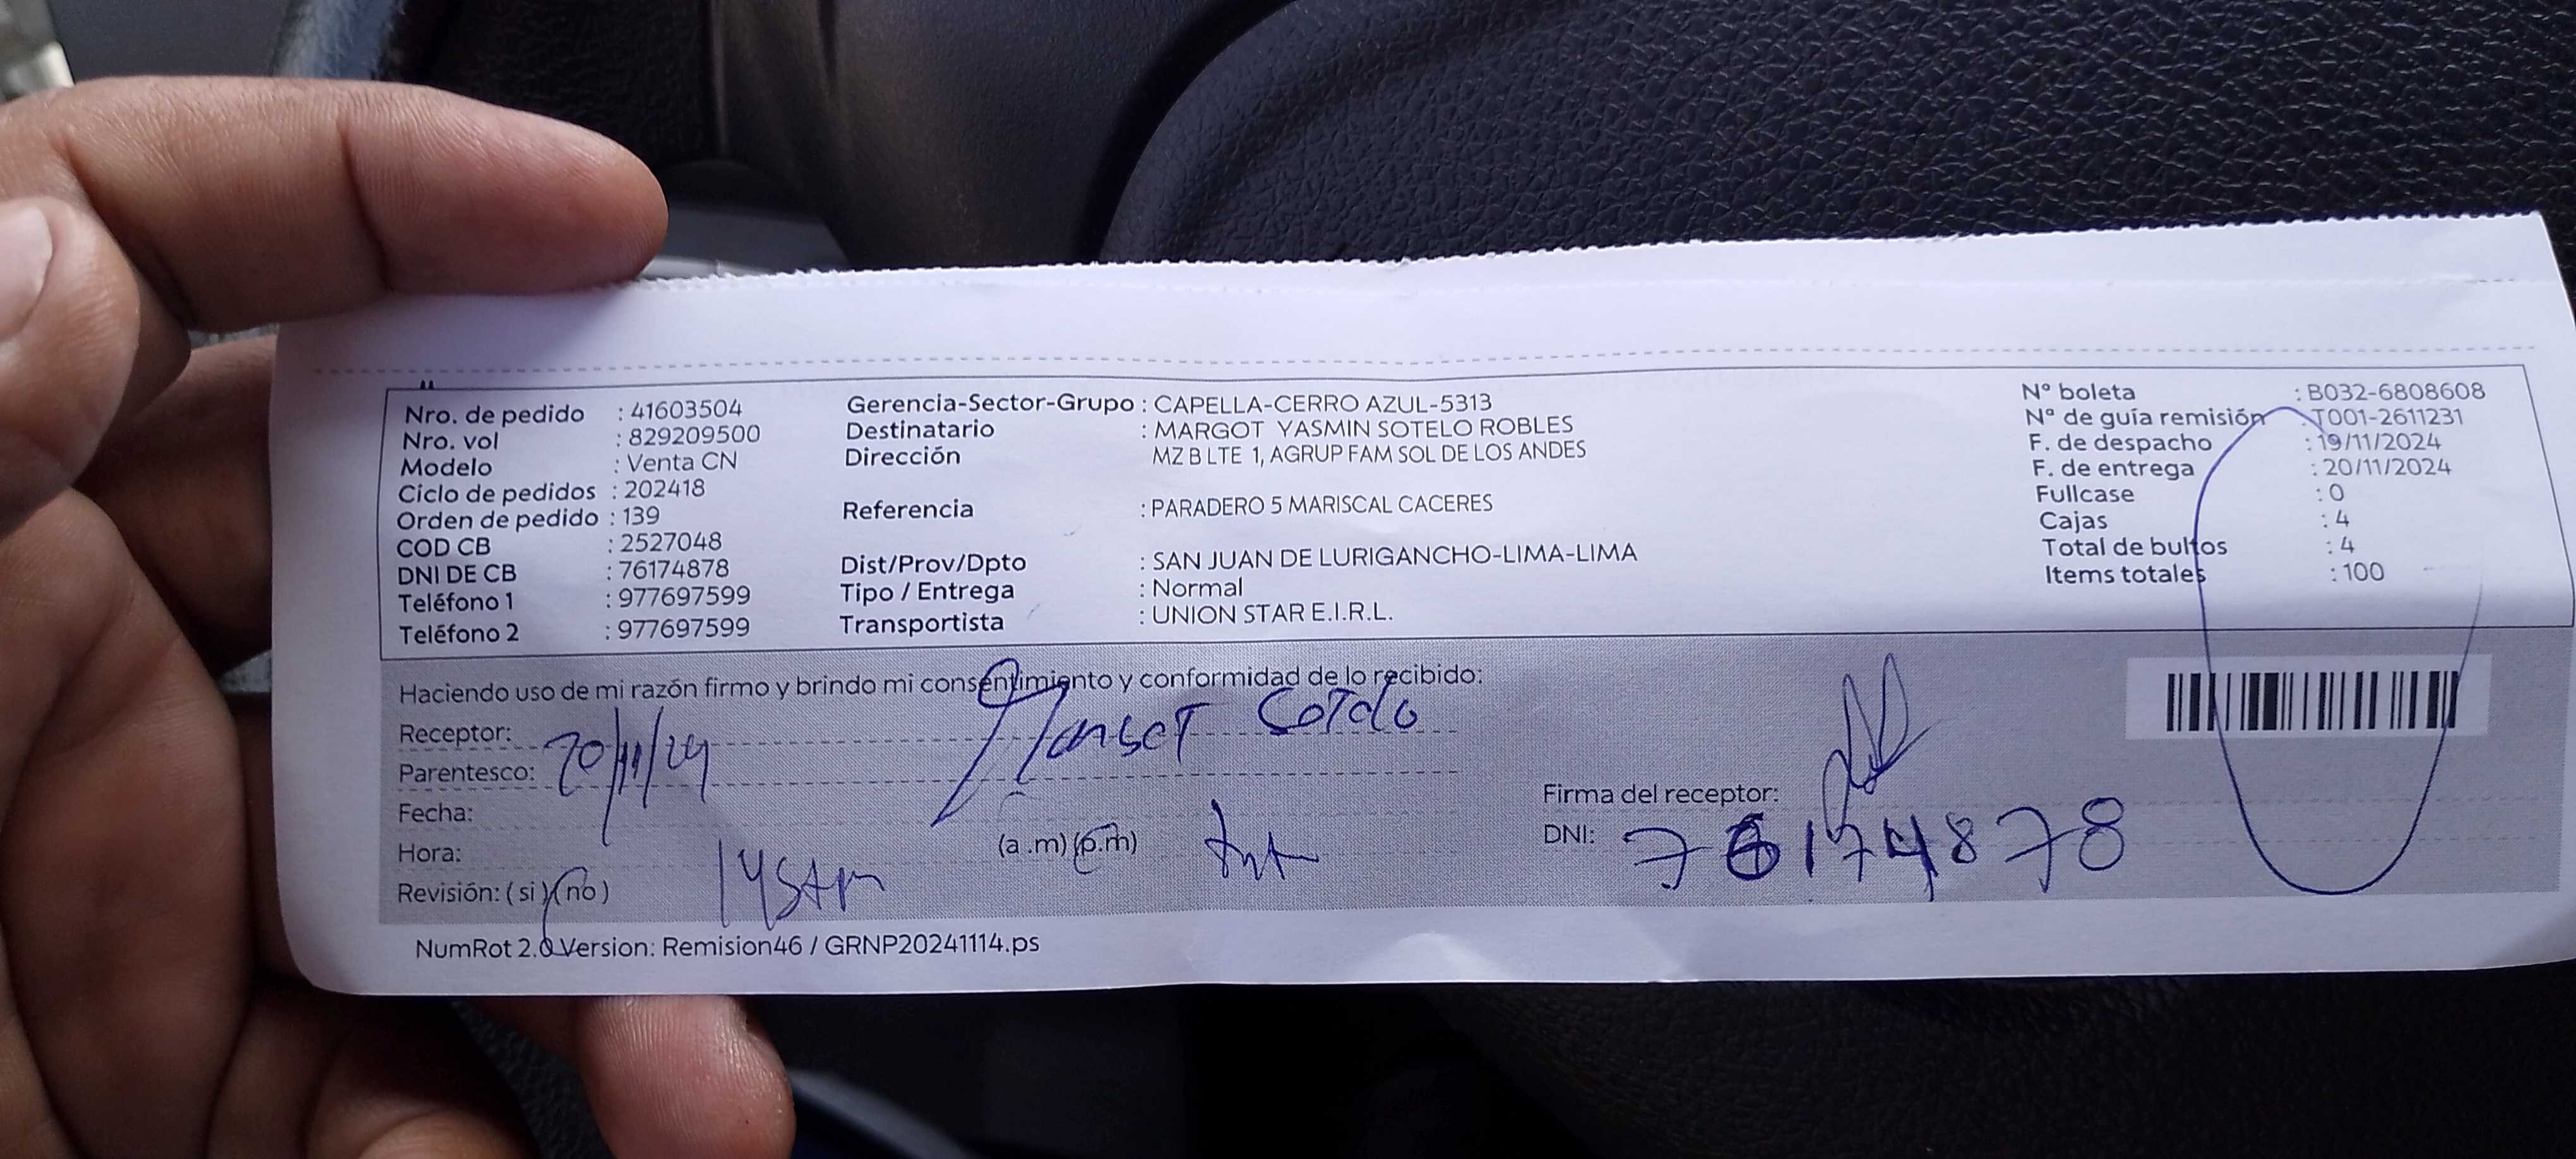 Nro. de pedido : 41603504
Nro. vol : 829209500
Modelo : Venta CN
Ciclo de pedidos : 202418
Orden de pedido : 139
COD CB : 2527048
DNI DE CB : 76174878
Teléfono 1 : 977697599
Teléfono 2 : 977697599
Gerencia-Sector-Grupo : CAPELLA-CERRO AZUL-5313
Destinatario : MARGOT YASMIN SOTELO ROBLES
Dirección MZ B LTE 1, AGRUP FAM SOL DE LOS ANDES
Referencia : PARADERO 5 MARISCAL CACERES
Dist/Prov/Dpto : SAN JUAN DE LURIGANCHO-LIMA-LIMA
Tipo / Entrega : Normal
Transportista : UNION STAR E.I.R.L.
N° boleta : B032-6808608
N° de guía remisión : T001-2611231
F. de despacho : 19/11/2024
F. de entrega : 20/11/2024
Fullcase : 0
Cajas : 4
Total de bultos : 4
Items totales : 100
Haciendo uso de mi razón firmo y brindo mi consentimiento y conformidad de lo recibido:
Receptor: Margot Sotelo
Parentesco: 20/11/24
Fecha:
Hora: (a .m) (p.m)
Revisión: ( si ) ( no )
Firma del receptor:
DNI: 76174878
NumRot 2.0 Version: Remision46 / GRNP20241114.ps